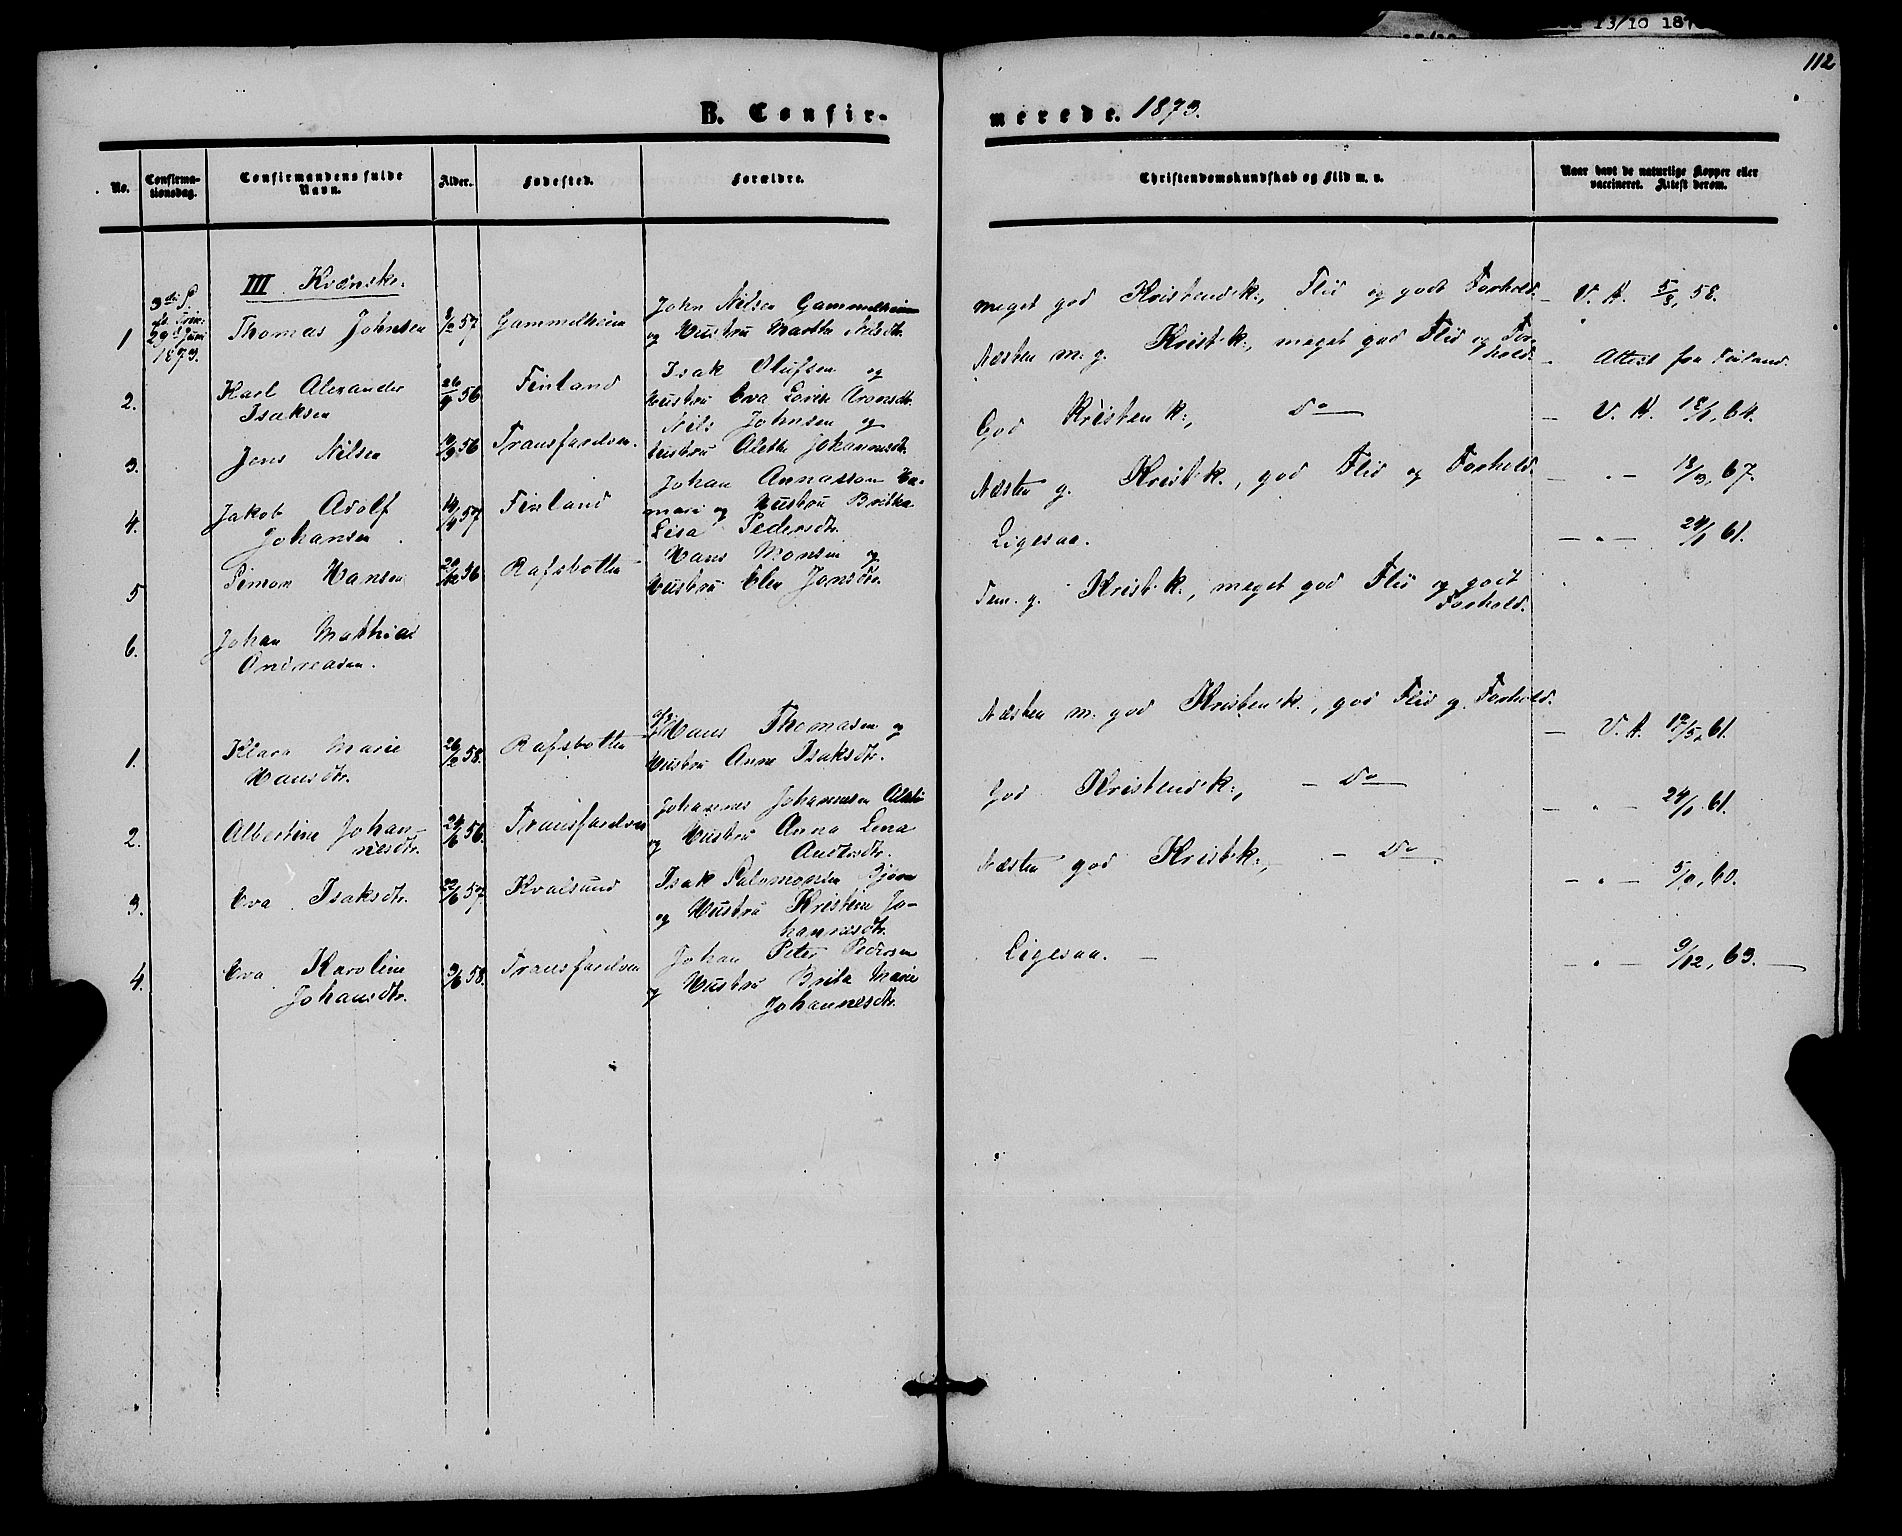 13/10 187
112
B. Confir-
merede. 1873.
No.
Confirma-
tionsdag.
Confirmandens fulde
Navn.
Alder.
Fødested.
Forældre.
Christendomskundskab og Flid m. v.
Naar havt de naturlige Kopper eller
vaccineret. Attest derom.
III Kvænske.
3die S.
29de Juni
1873.
1 Thomas Johnsen 57 Gammelheim
John Nilsen Gammelheim
og Hustru Marthe Nilsdtr.
meget god Kristendsk., Flid og godt Forhold. V. A. 5/8, 58.
2. Karl Alexander
Isaksen
26/4 56 Finland
Isak Olufsen og
Hustru Eva Lovise Aronsdtr.
Næsten m. g. Kristk., meget god Flid og For-
hold. – Attest fra Finland.
3. Jens Nilsen 56 Transfarelven.
Nils Johnsen og
Hustru Alette Johannesdtr.
God Kristen k:, do – V. A. 64.
4. Jakob Adolf
Johansen
14/4 57 Finland
Johan Annasson
og Hustru Britha
Lisa Pedersdtr.
Næsten g. Kristk., god Flid og Forhold. – " – 18/3, 67.
5 Simon Hansen 20/12 56 Rafsbotten
Hans Monsen og
Hustru Elen Jonsdtr.
Ligesaa. – " – 61.
6. Johan Mathias
Andreasen.
Tem. g. Kristk., meget god Flid og godt
Forhold.
1. Klara Marie
Hansdtr.
26/2 58. Rafsbotten
Hans Thomasen og
Hustru Anne Isaksdtr.
Næsten m. god Kristensk., god Flid g. Forhold. – V. A. 61.
2. Albertine Johan-
nesdtr.
24/6 56. Transfarelven
Johannes Johannesen
og Hustru Anna Lena
Andersdtr.
God Kristendsk:, – do – " – 61.
3. Eva Isaksdtr. 22/6 57. Kvalsund
Isak Salomonsen Bjørn
og Hustru Kristine Jo-
hannesdtr.
Næsten god Kristk:, – do – " – 60.
4. Eva Karoline
Johansdtr.
58. Transfarelven
Johan Peter Pedersen
og Hustru Brita Marie
Johannesdtr.
Ligesaa. – – " – 9/12, 63.